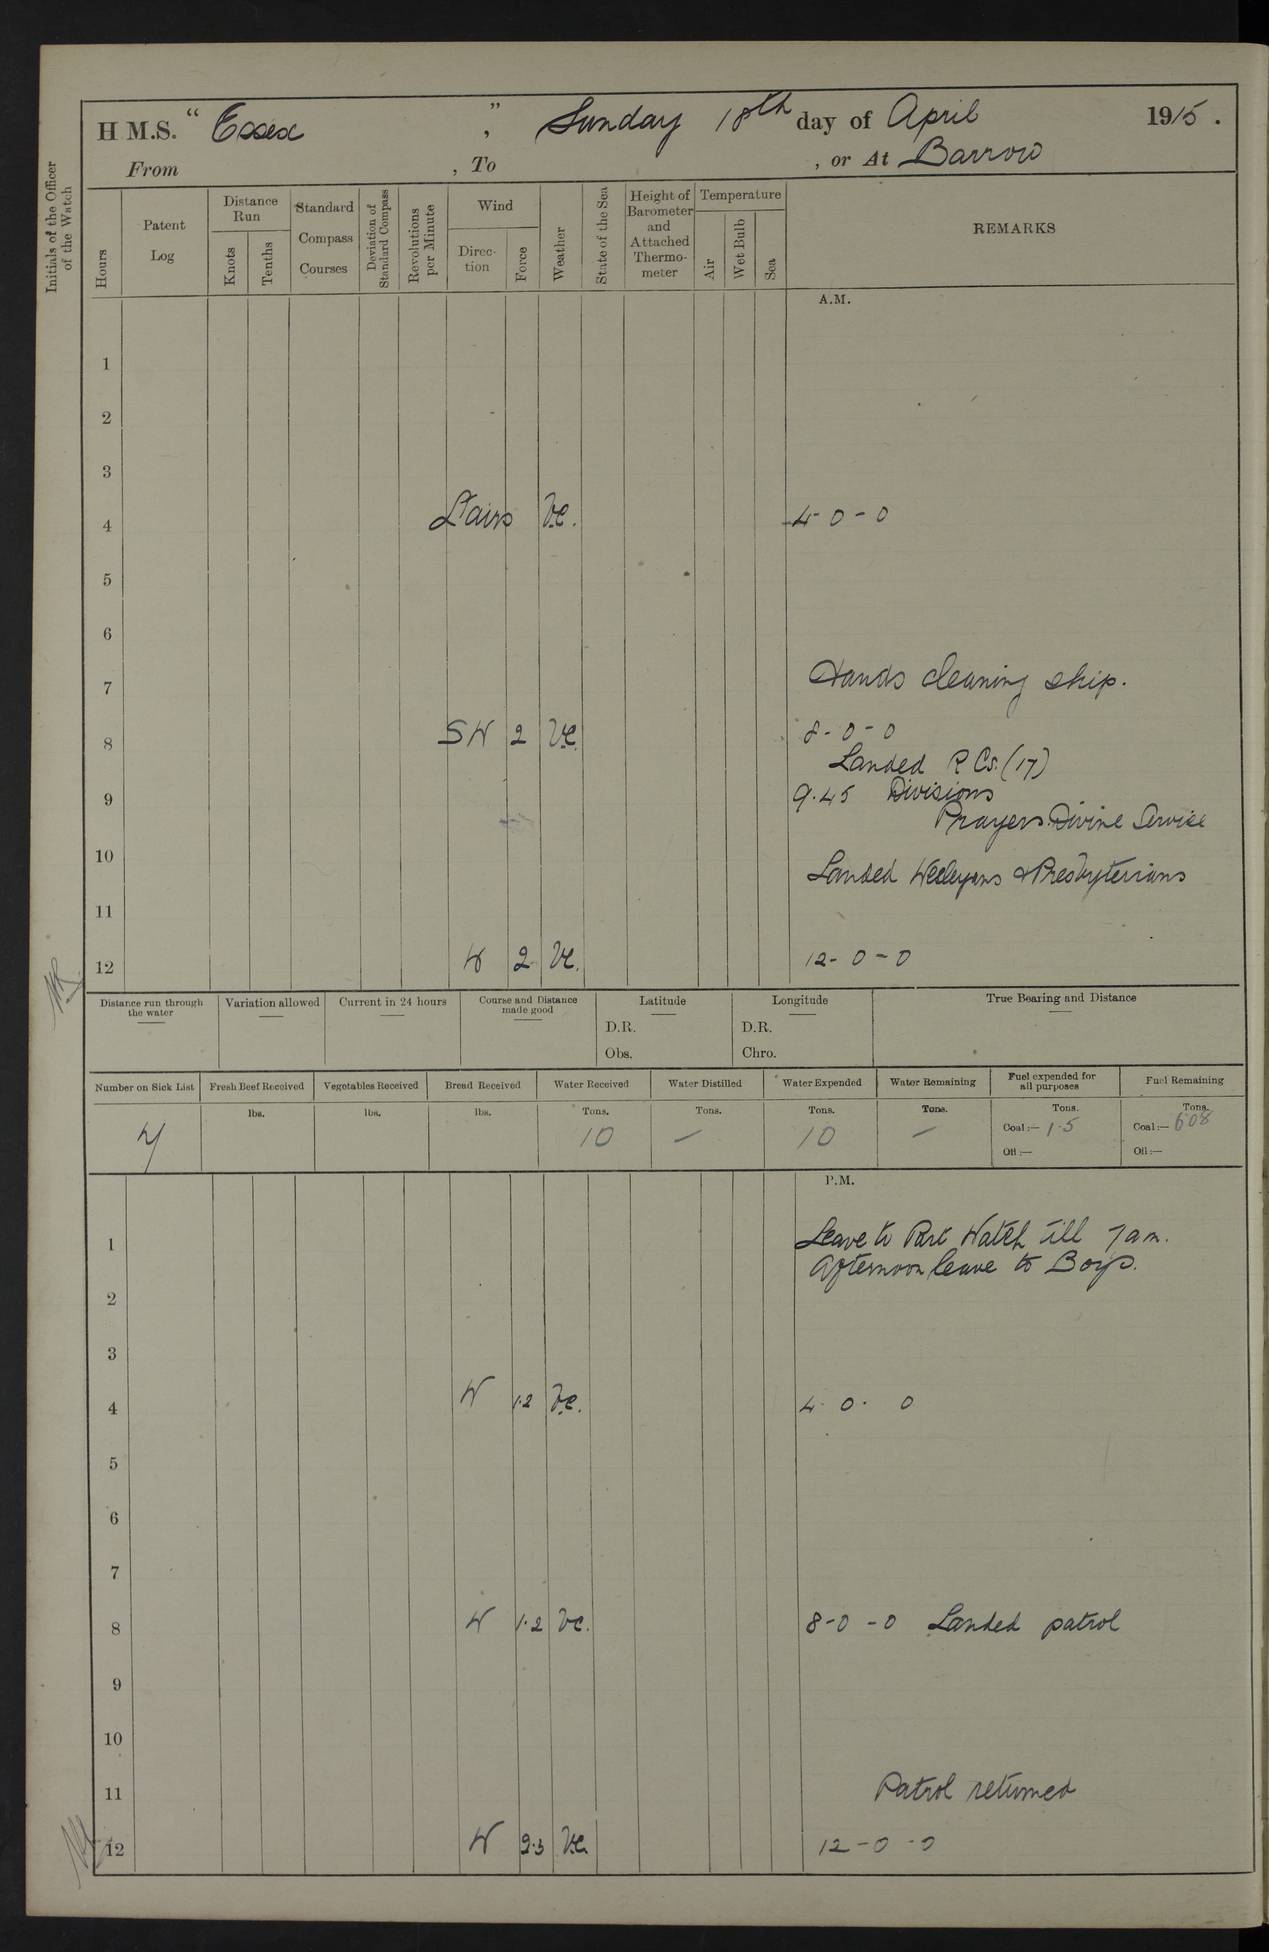 H M.S. "Essex", Sunday 18th day of April 1915.
From , To , or At Barrow
Initials of the Officer of the Watch
Hours
Patent Log
Distance Run
Knots
Tenths
Standard Compass Courses
Deviation of Standard Compass
Revolutions per Minute
Wind
Direction
Force
Weather
State of the Sea
Height of Barometer and Attached Thermometer
Temperature
Air
Wet Bulb
Sea
REMARKS
A.M.
1
2
3
4 Lt airs b.c. 4-0-0
5
6
7 Hands cleaning ship.
8 SW 2 b.c. 8-0-0
Landed R Cs. (17)
9 9.45 Divisions
Prayers. Divine Service
10 Landed Wesleyans & Presbyterians
11
12 W 2 b.c. 12-0-0
Distance run through the water
Variation allowed
Current in 24 hours
Course and Distance made good
Latitude
D.R.
Obs.
Longitude
D.R.
Chro.
True Bearing and Distance
Number on Sick List
Fresh Beef Received
Vegetables Received
Bread Received
Water Received
Water Distilled
Water Expended
Water Remaining
Fuel expended for all purposes
Fuel Remaining
lbs. lbs. lbs. Tons. Tons. Tons. Tons. Tons. Tons.
4 10 — 10 — Coal:— 15 Coal:— 608
Oil:— Oil:—
P.M.
1 Leave to Part Watch till 7 am.
Afternoon leave to Boys.
2
3
4 W 1.2 b.c. 4. 0. 0
5
6
7
8 W 1.2 bc. 8-0-0 Landed patrol
9
10
11 Patrol returned
12 W 2.3 b.c. 12-0-0